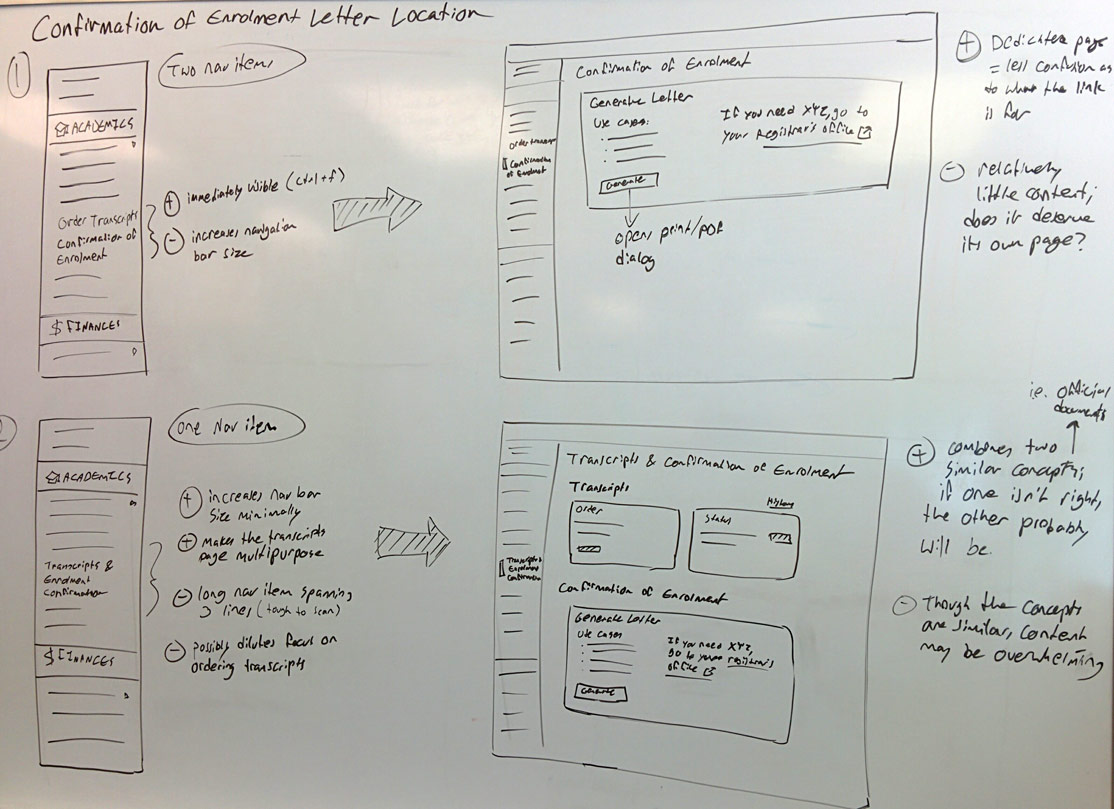 Confirmation of Enrolment Letter Location
1
Two nav items
ACADEMICS
Order Transcripts
Confirmation of
Enrolment
$ FINANCES
+ immediately visible (ctrl+f)
- increases navigation
bar size
Order Transcript
Confirmation
of Enrolment
Confirmation of Enrolment
Generate Letter
Use cases:
Generate
If you need XYZ, go to
your Registrar's office
opens print/PDF
dialog
+ Dedicated page
= less confusion as
to what the link
is for
- relatively
little content;
does it deserve
its own page?
2
One Nav item
ACADEMICS
Transcripts &
Enrolment
Confirmation
$ FINANCES
+ increases nav bar
size minimally
+ makes the transcripts
page multipurpose
- long nav item spanning
3 lines (tough to scan)
- possibly dilutes focus on
ordering transcripts
Transcripts &
Enrolment
Confirmation
Transcripts & Confirmation of Enrolment
Transcripts
Order
Status
Confirmation of Enrolment
Generate Letter
Use cases
Generate
If you need XYZ,
go to your registrar's
office
i.e. official
documents
+ combines two
similar concepts;
if one isn't right,
the other probably
will be.
- Though the concepts
are similar, content
may be overwhelming